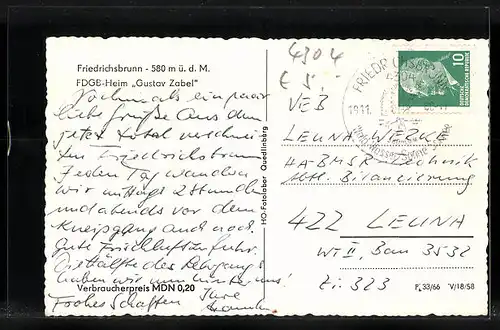 Friedrichsbrunn - 580 m ü. d. M.
FDGB-Heim „Gustav Zabel"
Nochmals ein paar
liebe Grüße aus dem
jetzt total verschnei-
ten Friedrichsbrunn
Jeden Tag wandern
wir mittags 2 Stunden
und abends vor dem
Kneipgang auch noch
gute Frischluftzufuhr.
Die Hälfte des Lehrgangs
haben wir nun
Frohes Schaffen Ihre
Verbraucherpreis MDN 0,20
HO-Fotolabor Quedlinburg
4304
€ 5,-
FRIEDRICHSBRUNN
4304
18.11.
10
DEUTSCHE
DEMOKRATISCHE REPUBLIK
VEB
LEUNA-WERKE
HA-BMSR-Technik
Abt. Bilanzierung
422 LEUNA
W II, Bau 3532
Zi. 323
P 33/66 V/18/58